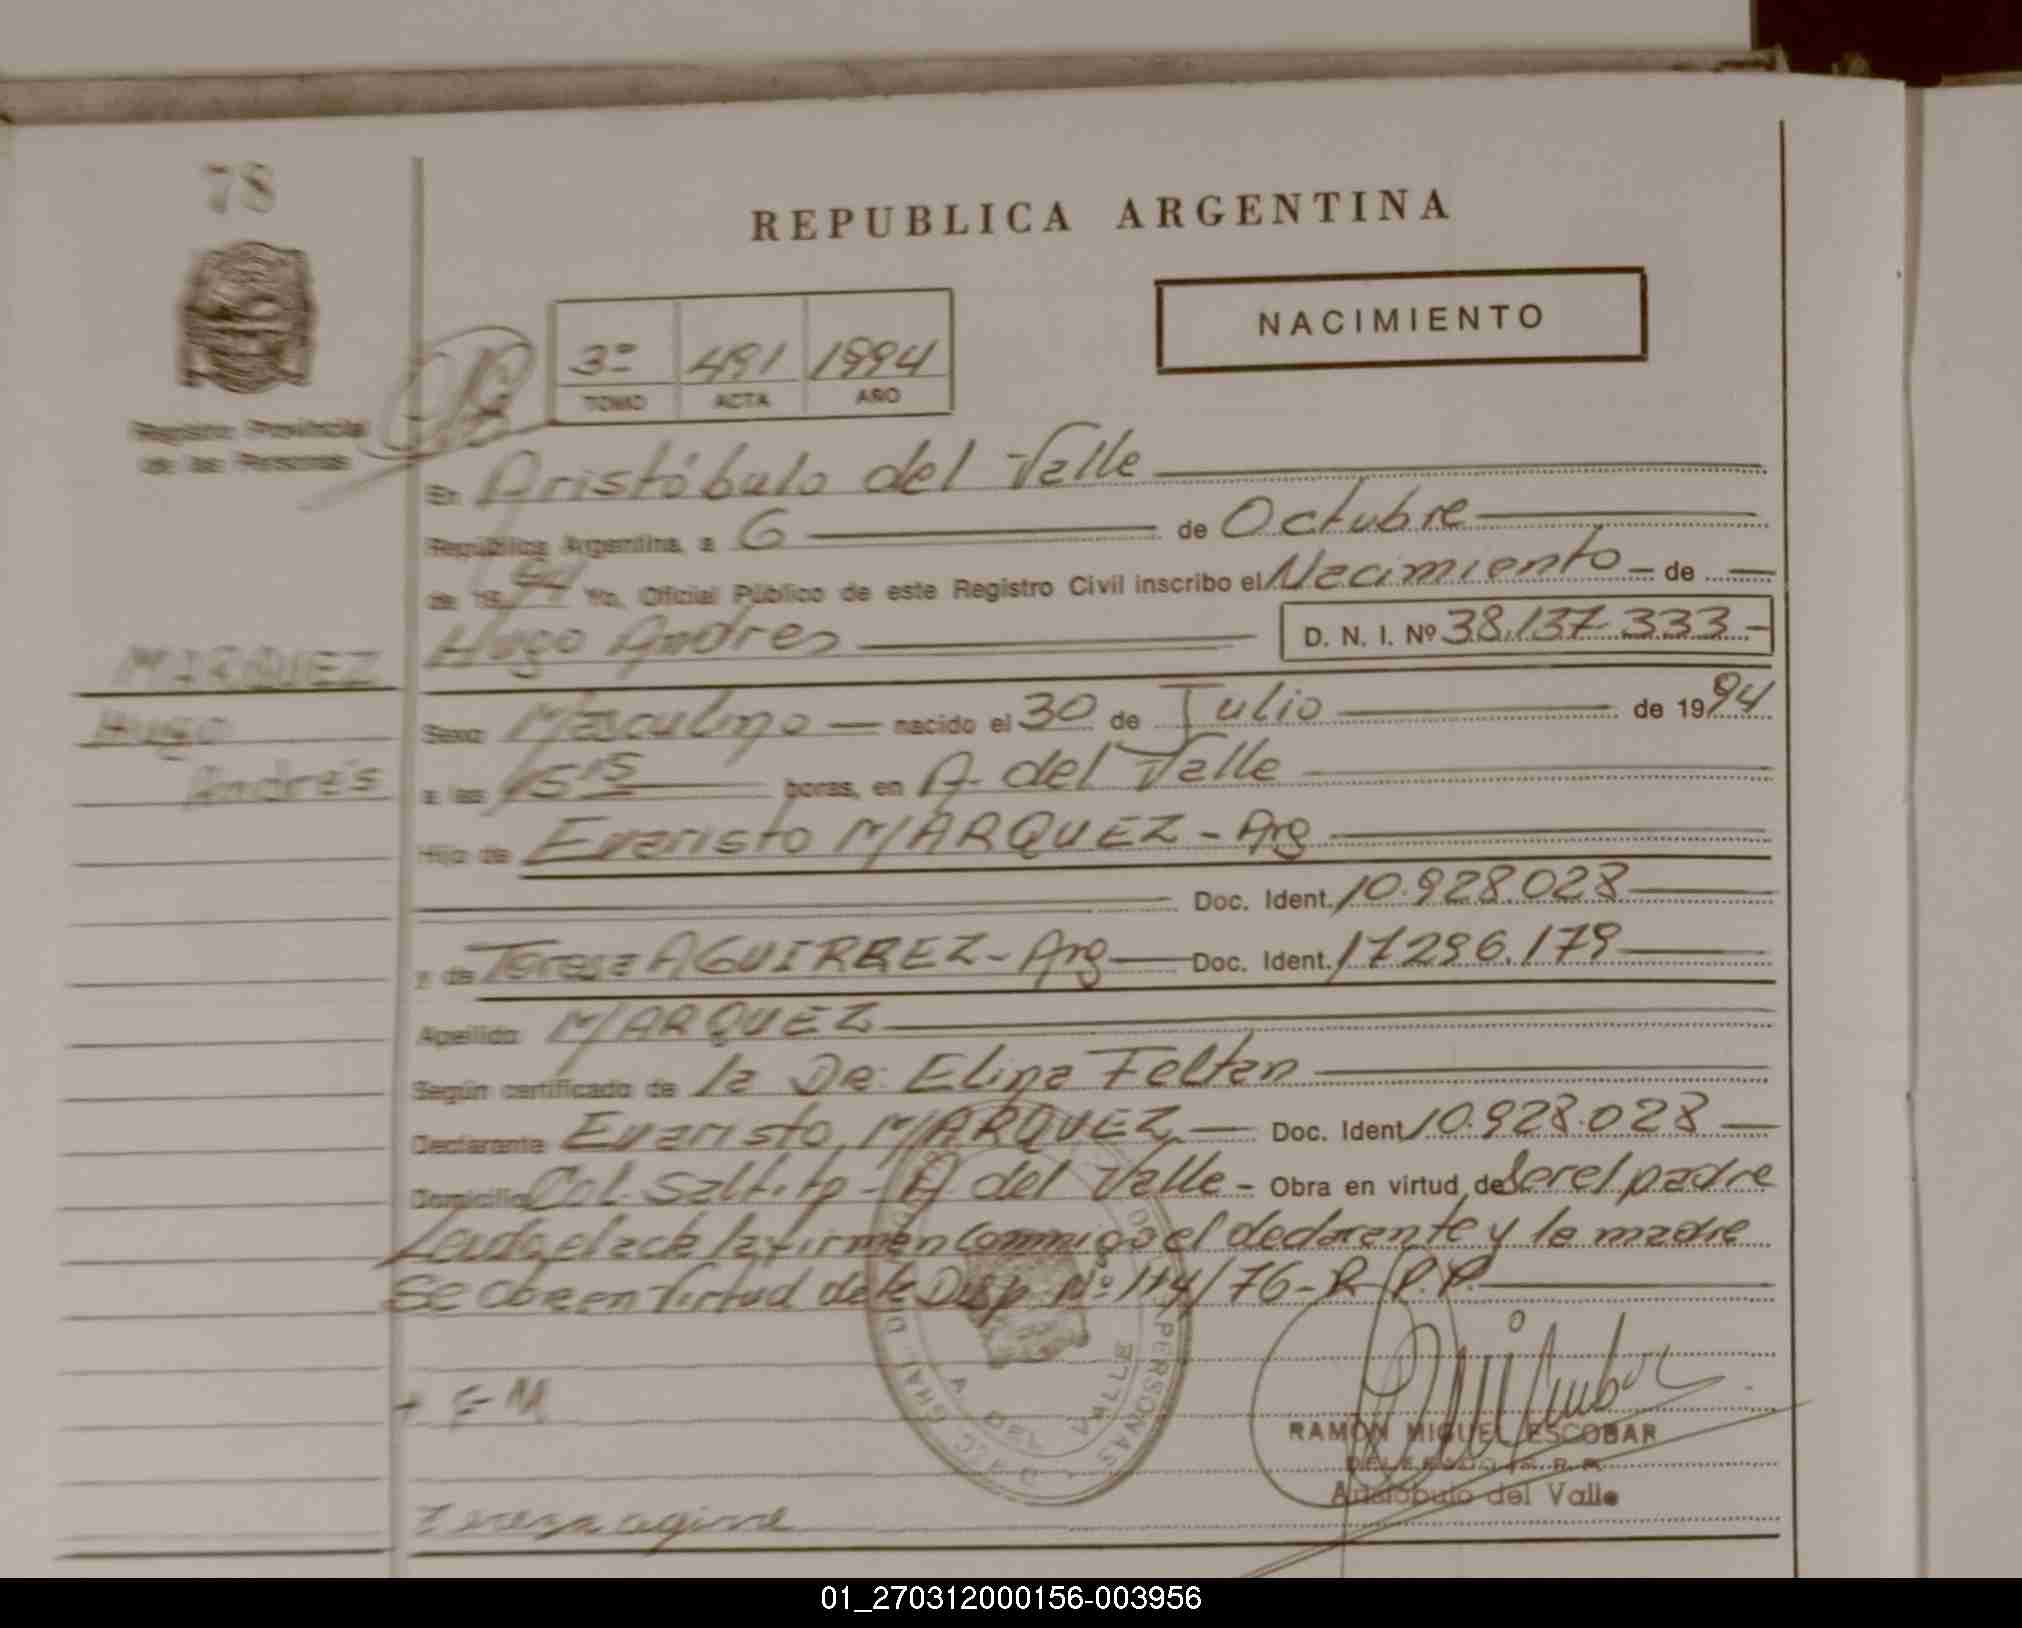 78
REPUBLICA ARGENTINA
NACIMIENTO
3º 491 1994
TOMO ACTA AÑO
Registro Provincial
de las Personas
En Aristóbulo del Valle
República Argentina, a 6 de Octubre
de 19 94 Yo, Oficial Público de este Registro Civil inscribo el Nacimiento de
Hugo Andres D. N. I. Nº 38.137.333
MARQUEZ
Hugo
Andrés
Sexo Masculino nacido el 30 de Julio de 1994
a las 15 15 horas, en A. del Valle
Hijo de Evaristo MARQUEZ - Arg
Doc. Ident. 10.928.028
y de Teresa AGUIRREZ - Arg Doc. Ident. 17296.179
Apellido MARQUEZ
Según certificado de la Dra. Elina Feltan
Declarante Evaristo MARQUEZ Doc. Ident 10.928.028
Domicilio Col. Saltito - A del Valle - Obra en virtud de Ser el padre
Leida el acta la firman Conmigo el declarante y la madre
Se obra en Virtud de la Disp. Nº 114/76 - R.P.P.
A. DEL VALLE
PERSONAS
+ E M
RAMON MIGUEL ESCOBAR
DELEGADO R. P.
Aristóbulo del Valle
Tereza agirre
01_270312000156-003956